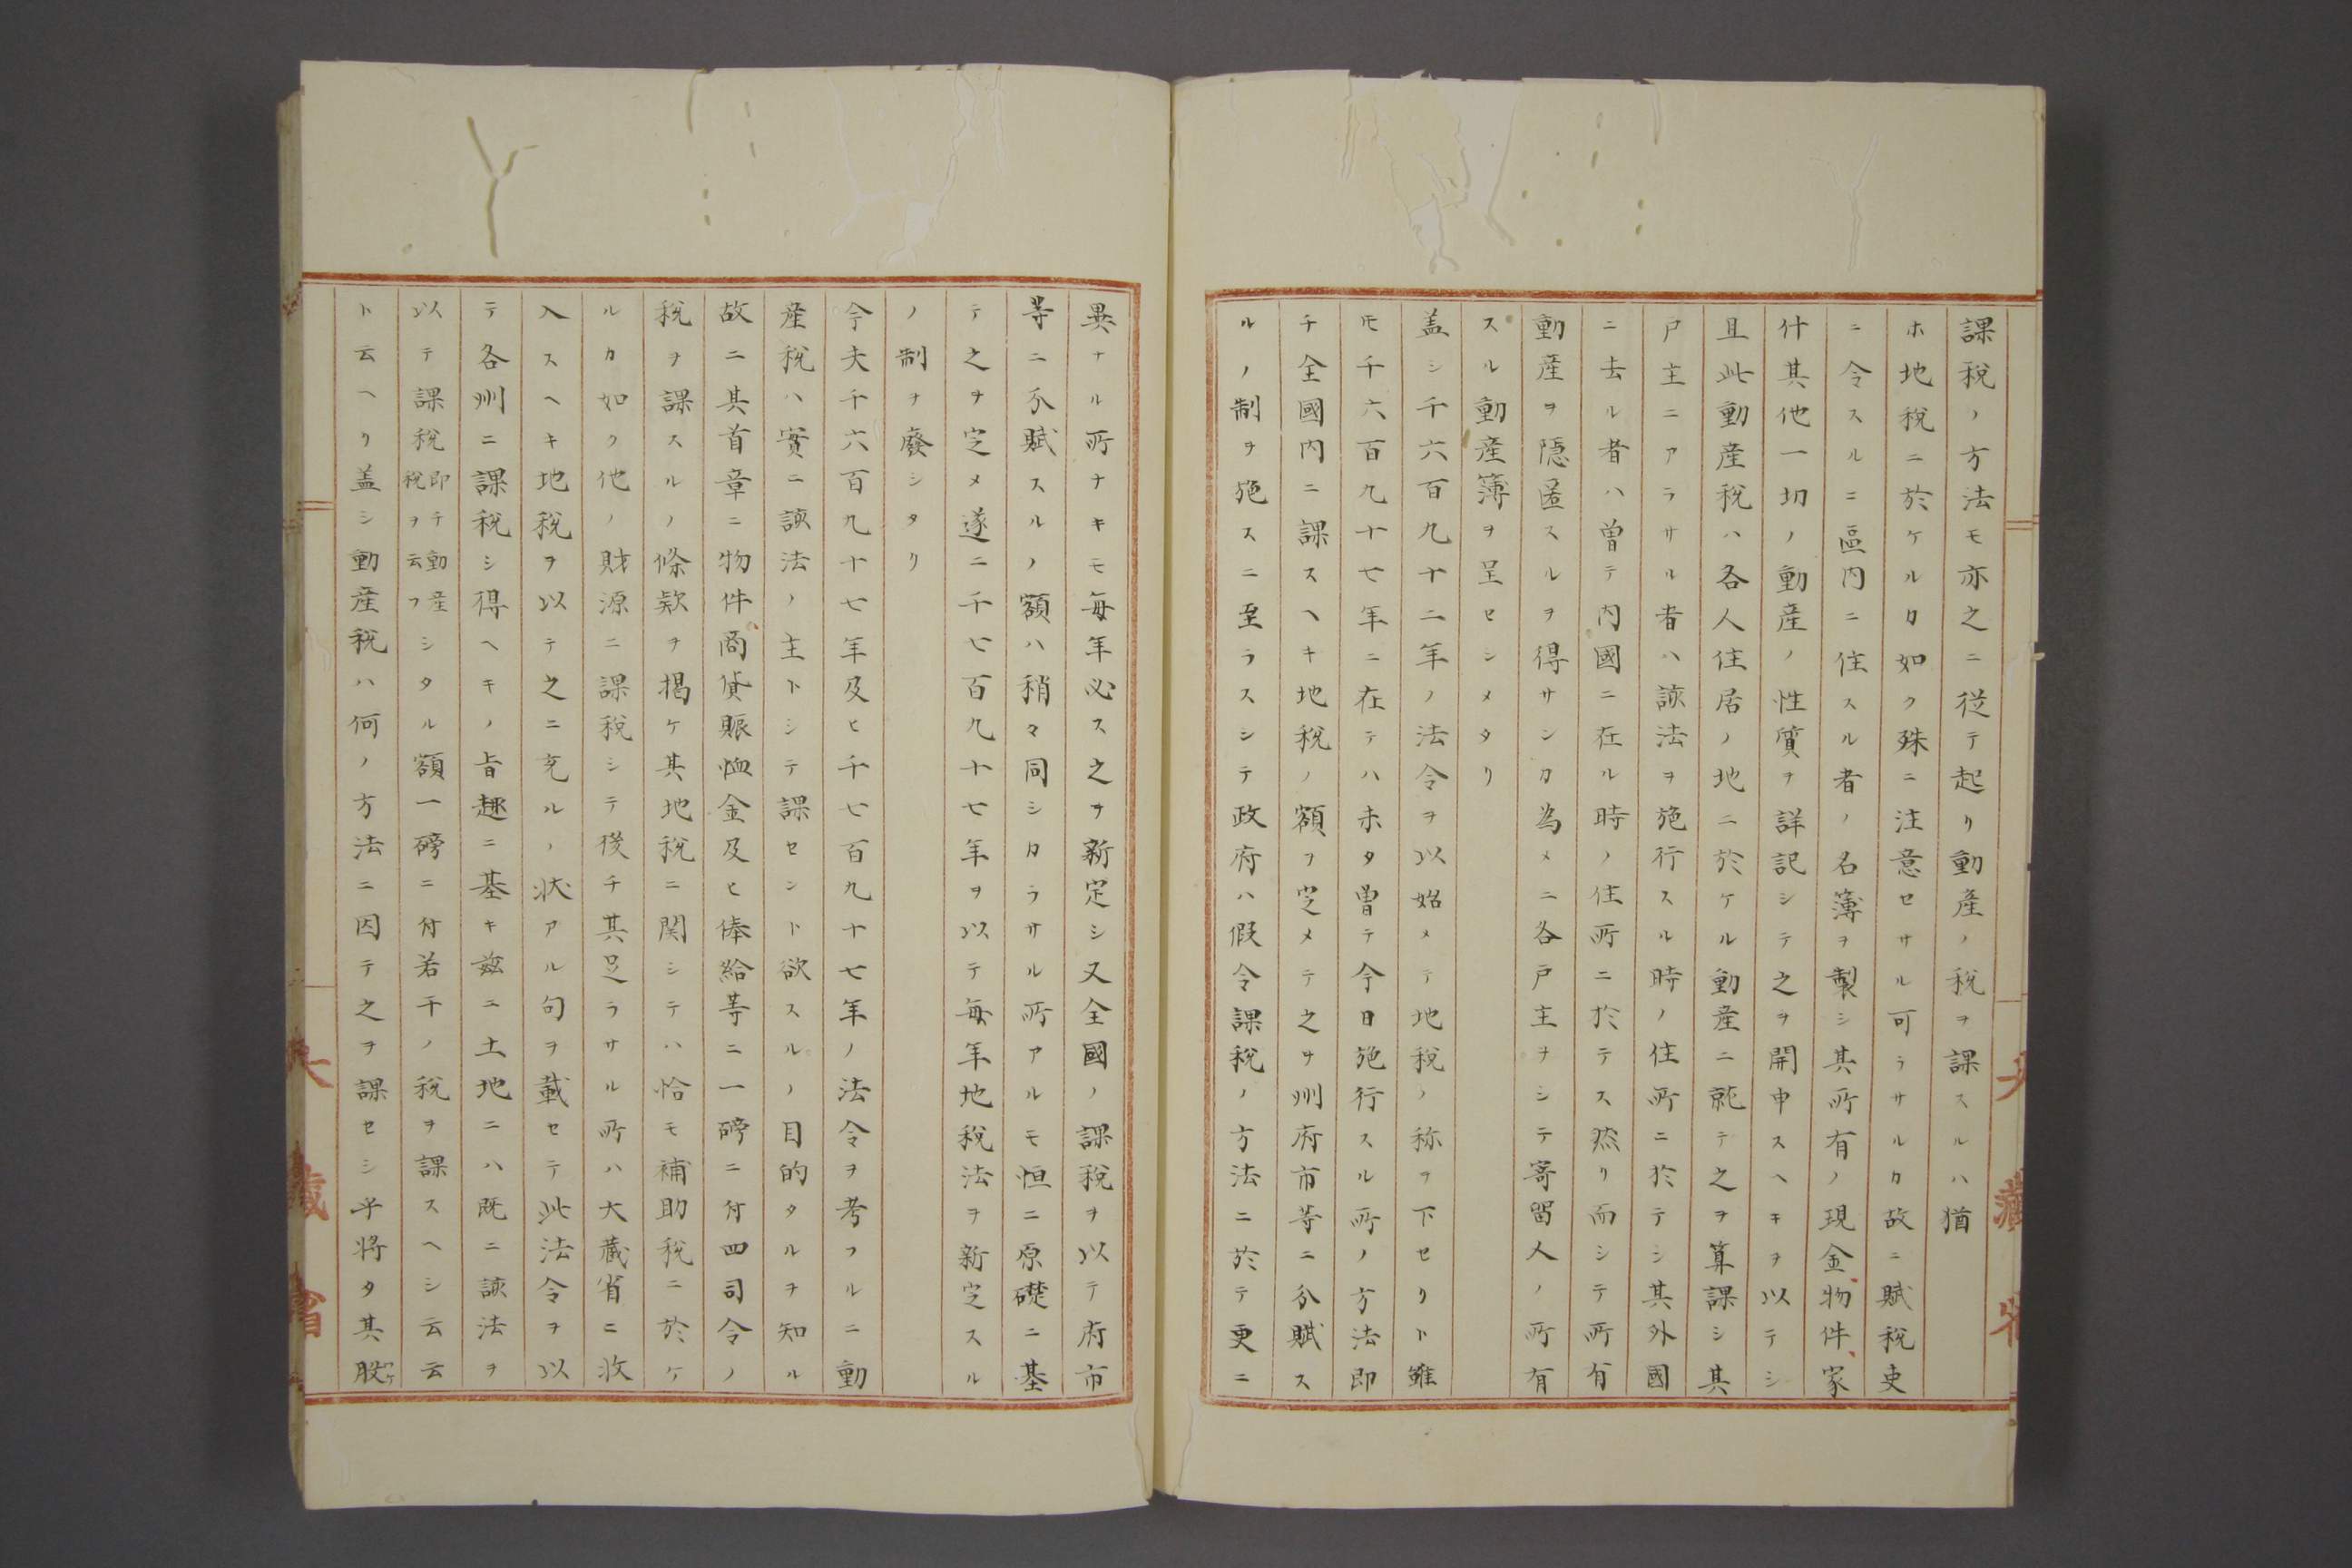 課税ノ方法モ亦之ニ従テ起リ動産ノ税ヲ課スルハ猶
ホ地税ニ於ケルカ如ク殊ニ注意セサル可ラサルカ故ニ賦税吏
ニ令スルニ區内ニ住スル者ノ名簿ヲ製シ其所有ノ現金、物件、家
什其他一切ノ動産ノ性質ヲ詳記シテ之ヲ開申スヘキヲ以テシ
且此動産税ハ各人住居ノ地ニ於ケル動産ニ就テ之ヲ算課シ其
戸主ニアラサル者ハ該法ヲ施行スル時ノ住所ニ於テシ其外國
ニ去ル者ハ曽テ内國ニ在ル時ノ住所ニ於テス然リ而シテ所有
動産ヲ隠匿スルヲ得サンカ為メニ各戸主ヲシテ寄留人ノ所有
スル動産簿ヲ呈セシメタリ
蓋シ千六百九十二年ノ法令ヲ以始メテ地税ノ称ヲ下セリト雖
𪜈千六百九十七年ニ在テハ未タ曽テ今日施行スル所ノ方法即
チ全國内ニ課スヘキ地税ノ額ヲ定メテ之ヲ州府市等ニ分賦ス
ルノ制ヲ施スニ至ラスシテ政府ハ假令課税ノ方法ニ於テ更ニ
異ナル所ナキモ毎年必ス之ヲ新定シ又全國ノ課税ヲ以テ府市
等ニ分賦スルノ額ハ稍々同シカラサル所アルモ恒ニ原礎ニ基
テ之ヲ定メ遂ニ千七百九十七年ヲ以テ毎年地税法ヲ新定スル
ノ制ヲ廢シタリ
今夫千六百九十七年及ヒ千七百九十七年ノ法令ヲ考フルニ動
産税ハ實ニ該法ノ主トシテ課セント欲スルノ目的タルヲ知ル
故ニ其首章ニ物件、商貨賑恤金及ヒ俸給等ニ一磅ニ付四司令ノ
税ヲ課スルノ條款ヲ掲ケ其地税ニ関シテハ恰モ補助税ニ於ケ
ルカ如ク他ノ財源ニ課税シテ後チ其足ラサル所ハ大藏省ニ收
入スヘキ地税ヲ以テ之ニ充ルノ状アル句ヲ載セテ此法令ヲ以
テ各州ニ課税シ得ヘキノ旨趣ニ基キ茲ニ土地ニハ既ニ該法ヲ
以テ課税即チ動産税ヲ云フシタル額一磅ニ付若干ノ税ヲ課スヘシ云云
ト云ヘリ蓋シ動産税ハ何ノ方法ニ因テ之ヲ課セシ乎將タ其股
大藏省
大藏省